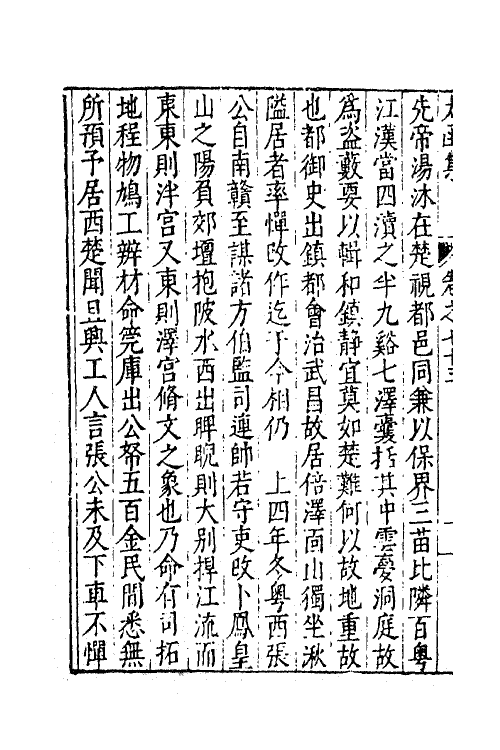 太函集 卷之七十三
先帝湯沐在楚視都邑同兼以保界三苗比隣百粵
江漢當四瀆之半九谿七澤囊括其中雲夢洞庭故
爲盗藪要以輯和鎮静宜莫如楚難何以故地重故
也都御史出鎮都會治武昌故居倍澤面山獨坐湫
隘居者率憚改作迄于今相仍 上四年冬粵西張
公自南贛至謀諸方伯監司連帥若守吏改卜鳳皇
山之陽負郊壇抱陂水西出睥睨則大别捍江流而
東東則泮宫又東則澤宫脩文之象也乃命有司拓
地程物鳩工辨材命筦庫出公帑五百金民間悉無
所預予居西楚聞且興工人言張公未及下車不憚